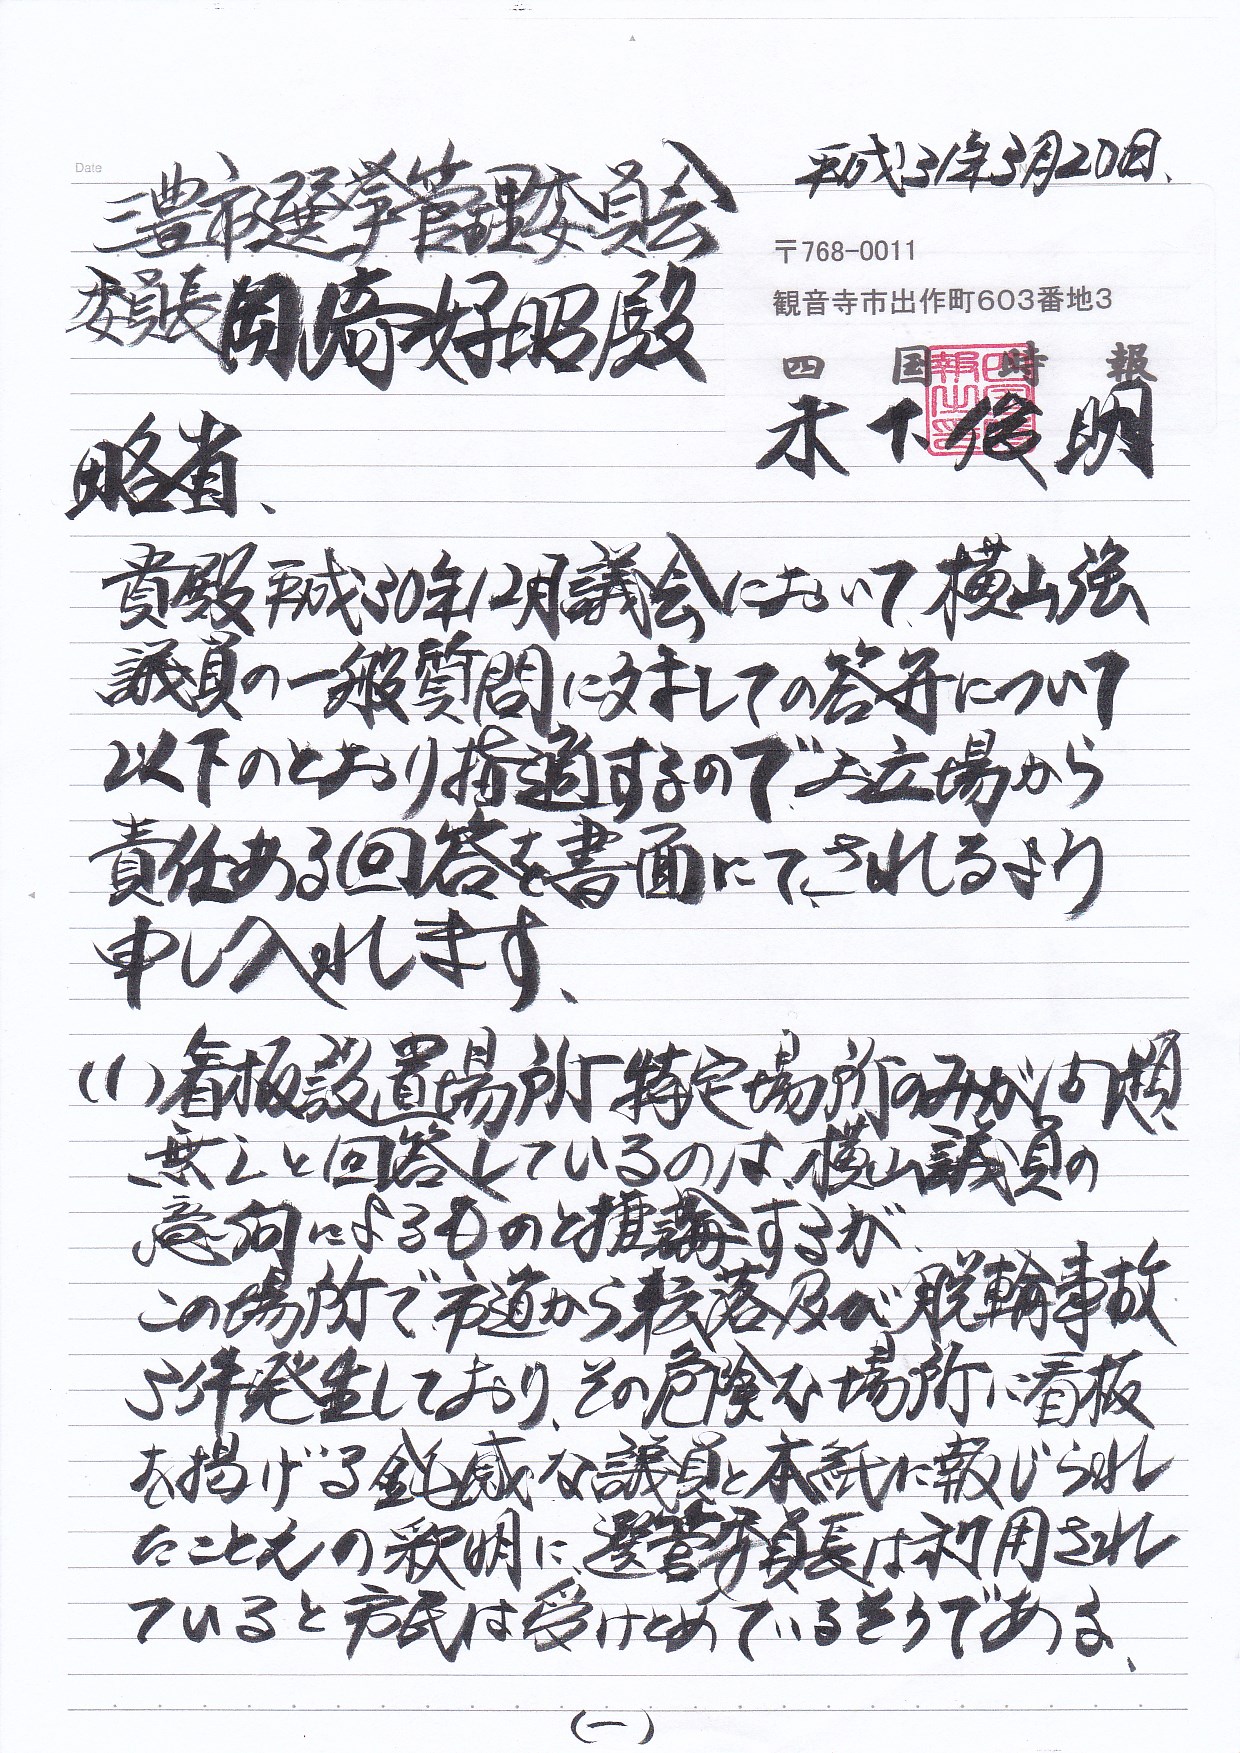 Date
平成31年3月20日、
三豊市選挙管理委員会
委員長 岡崎好昭殿
〒768-0011
観音寺市出作町603番地3
四国時報
木下俊明
略省、
貴殿平成30年12月議会において、横山強
議員の一般質問に対しての答弁について
以下のとおり指適するので、お立場から
責任ある回答を書面にて、されるよう
申し入れします、
(1)看板設置場所特定場所のみが問題
無しと回答しているのは、横山議員の
意向によるものと推論するが、
この場所で市道から転落及び脱輪事故
5件発生しており、その危険な場所に看板
を掲げる鈍感な議員と本紙に報じられ
たことえの釈明に、選管委員長は利用され
ていると市民は受けとめているそうである、
(一)